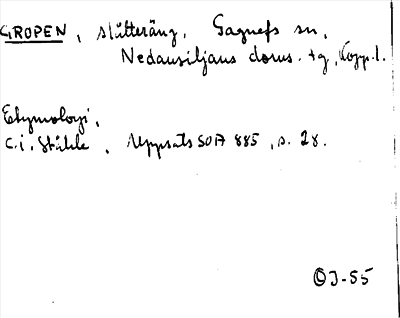 GROPEN, slåtteräng, Gagnefs sn,
Nedansiljans doms. tg, Kopp.l.
Etymologi,
C.i. Ståhle, Uppsats SOFI 885, s. 28.